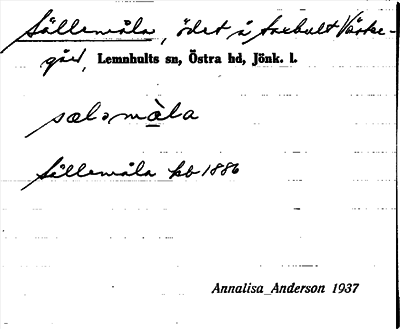 Sällemåla, ödet å Axebult Västre-
gård, Lemnhults sn, Östra hd, Jönk. l.
sælǝmàla
Sällemåla kb 1886
Annalisa Anderson 1937